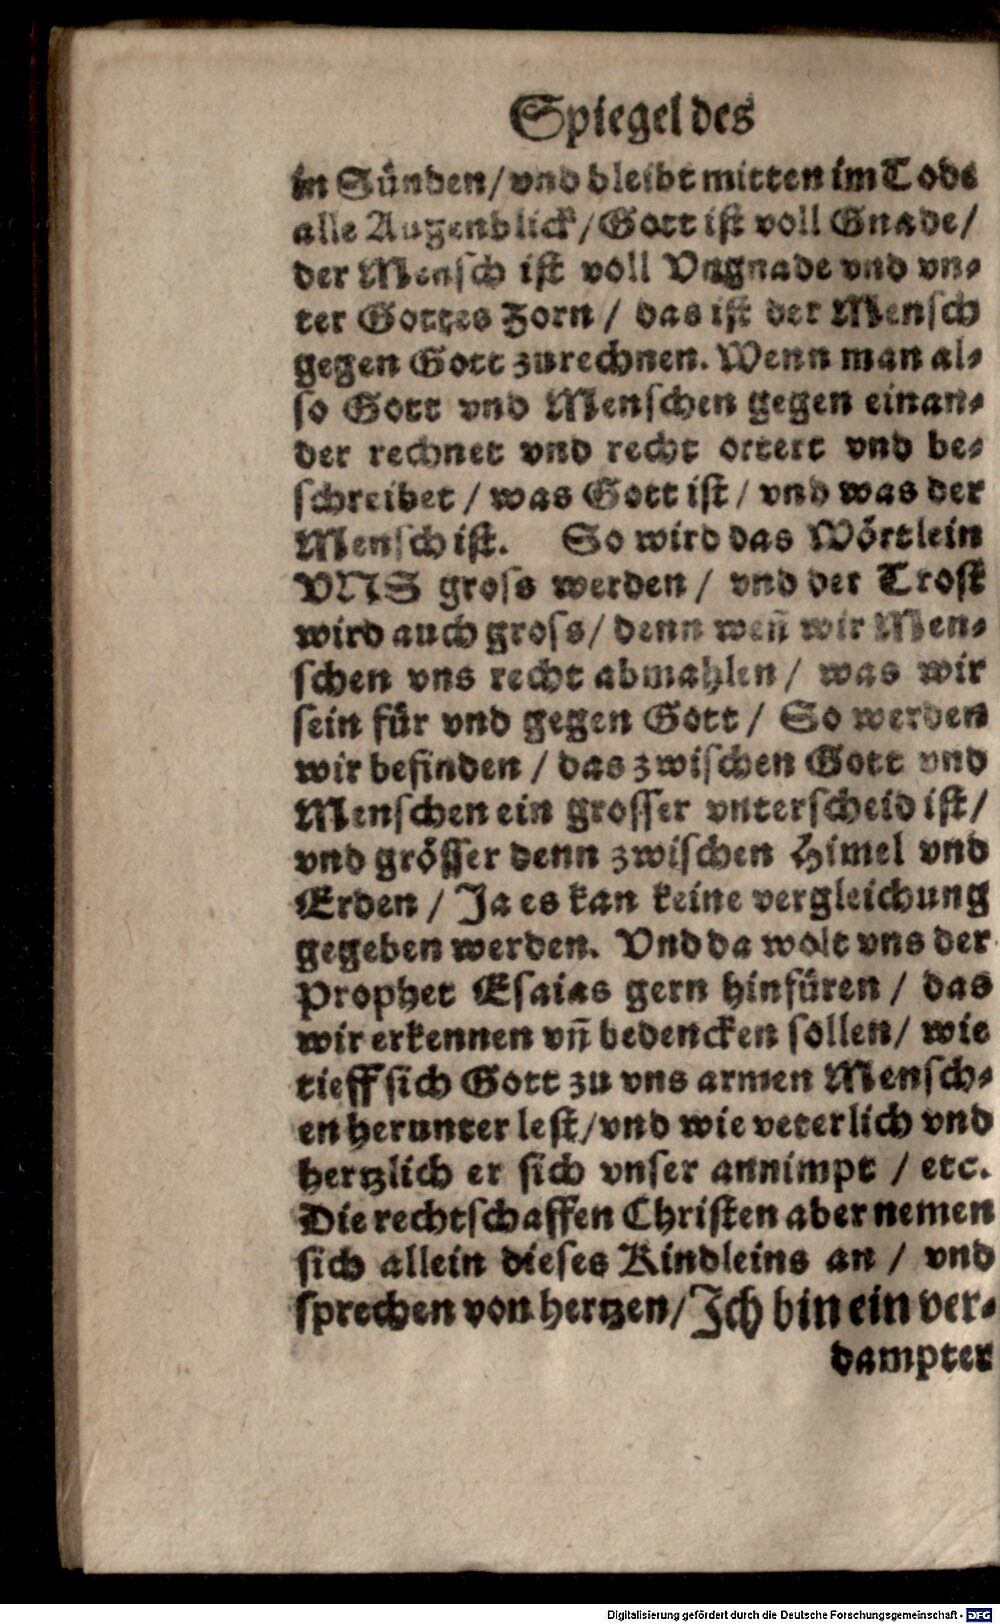 Spiegel des
in Sünden/vnd bleibt mitten im Tode
alle Augenblick/Gott ist voll Gnade/
der Mensch ist voll Vngnade vnd vn-
ter Gottes Zorn / das ist der Mensch
gegen Gott zurechnen. Wenn man al-
so Gott vnd Menschen gegen einan-
der rechnet vnd recht ortert vnd be-
schreibet / was Gott ist / vnd was der
Mensch ist. So wird das Wörtlein
VNS gross werden / vnd der Trost
wird auch gross/ denn weñ wir Men-
schen vns recht abmahlen / was wir
sein für vnd gegen Gott / So werden
wir befinden / das zwischen Gott vnd
Menschen ein grosser vnterscheid ist/
vnd grösser denn zwischen Himel vnd
Erden / Ja es kan keine vergleichung
gegeben werden. Vnd da wolt vns der
Prophet Esaias gern hinfüren / das
wir erkennen vñ bedencken sollen/ wie
tieff sich Gott zu vns armen Mensch-
en herunter lest/vnd wie veterlich vnd
hertzlich er sich vnser annimpt / etc.
Die rechtschaffen Christen aber nemen
sich allein dieses Kindleins an / vnd
sprechen von hertzen/Ich bin ein ver-
dampter
Digitalisierung gefördert durch die Deutsche Forschungsgemeinschaft - DFG